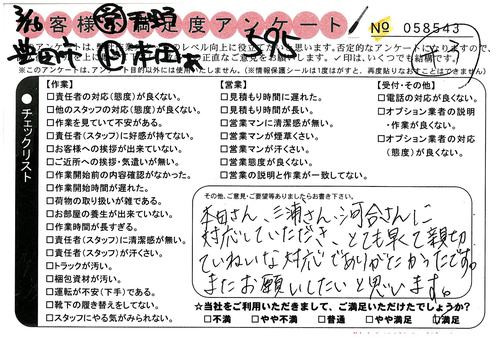 3/16 お客様満足度アンケート
No 058543
※このアンケートは、アンケート目的以外には使用いたしません。(※情報保護シールは1度はがすと、再度貼りなおすことはできません)
チェックリスト
【作業】
□責任者の対応(態度)が良くない。
□他のスタッフの対応(態度)が良くない。
□作業を見ていて不安がある。
□責任者(スタッフ)に好感が持てない。
□お客様への挨拶が出来ていない。
□ご近所への挨拶・気遣いが無い。
□作業開始前の内容確認がなかった。
□作業開始時間が遅れた。
□荷物の取り扱いが雑である。
□お部屋の養生が出来ていない。
□作業時間が長すぎる。
□責任者(スタッフ)に清潔感が無い。
□責任者(スタッフ)が汗くさい。
□トラックが汚い。
□梱包資材が汚い。
□運転が不安(下手)である。
□靴下の履き替えをしてない。
□スタッフにやる気がみられない。
【営業】
□見積もり時間に遅れた。
□見積もり時間が長い。
□営業マンに清潔感が無い。
□営業マンが煙草くさい。
□営業マンが汗くさい。
□営業態度が良くない。
□営業の説明と作業が一致してない。
【受付・その他】
□電話の対応が良くない。
□オプション業者の説明・作業が良くない。
□オプション業者の対応(態度)が良くない。
その他、ご意見・ご要望等ありましたらお書き下さい。
本田さん、三浦さん、河合さんに
対応していただき、とても早くて親切
ていねいな対応でありがたかったです。
またお願いしたいと思います。
☆当社をご利用いただきまして、ご満足いただけたでしょうか?
□不満 □やや不満 □普通 □やや満足 □満足